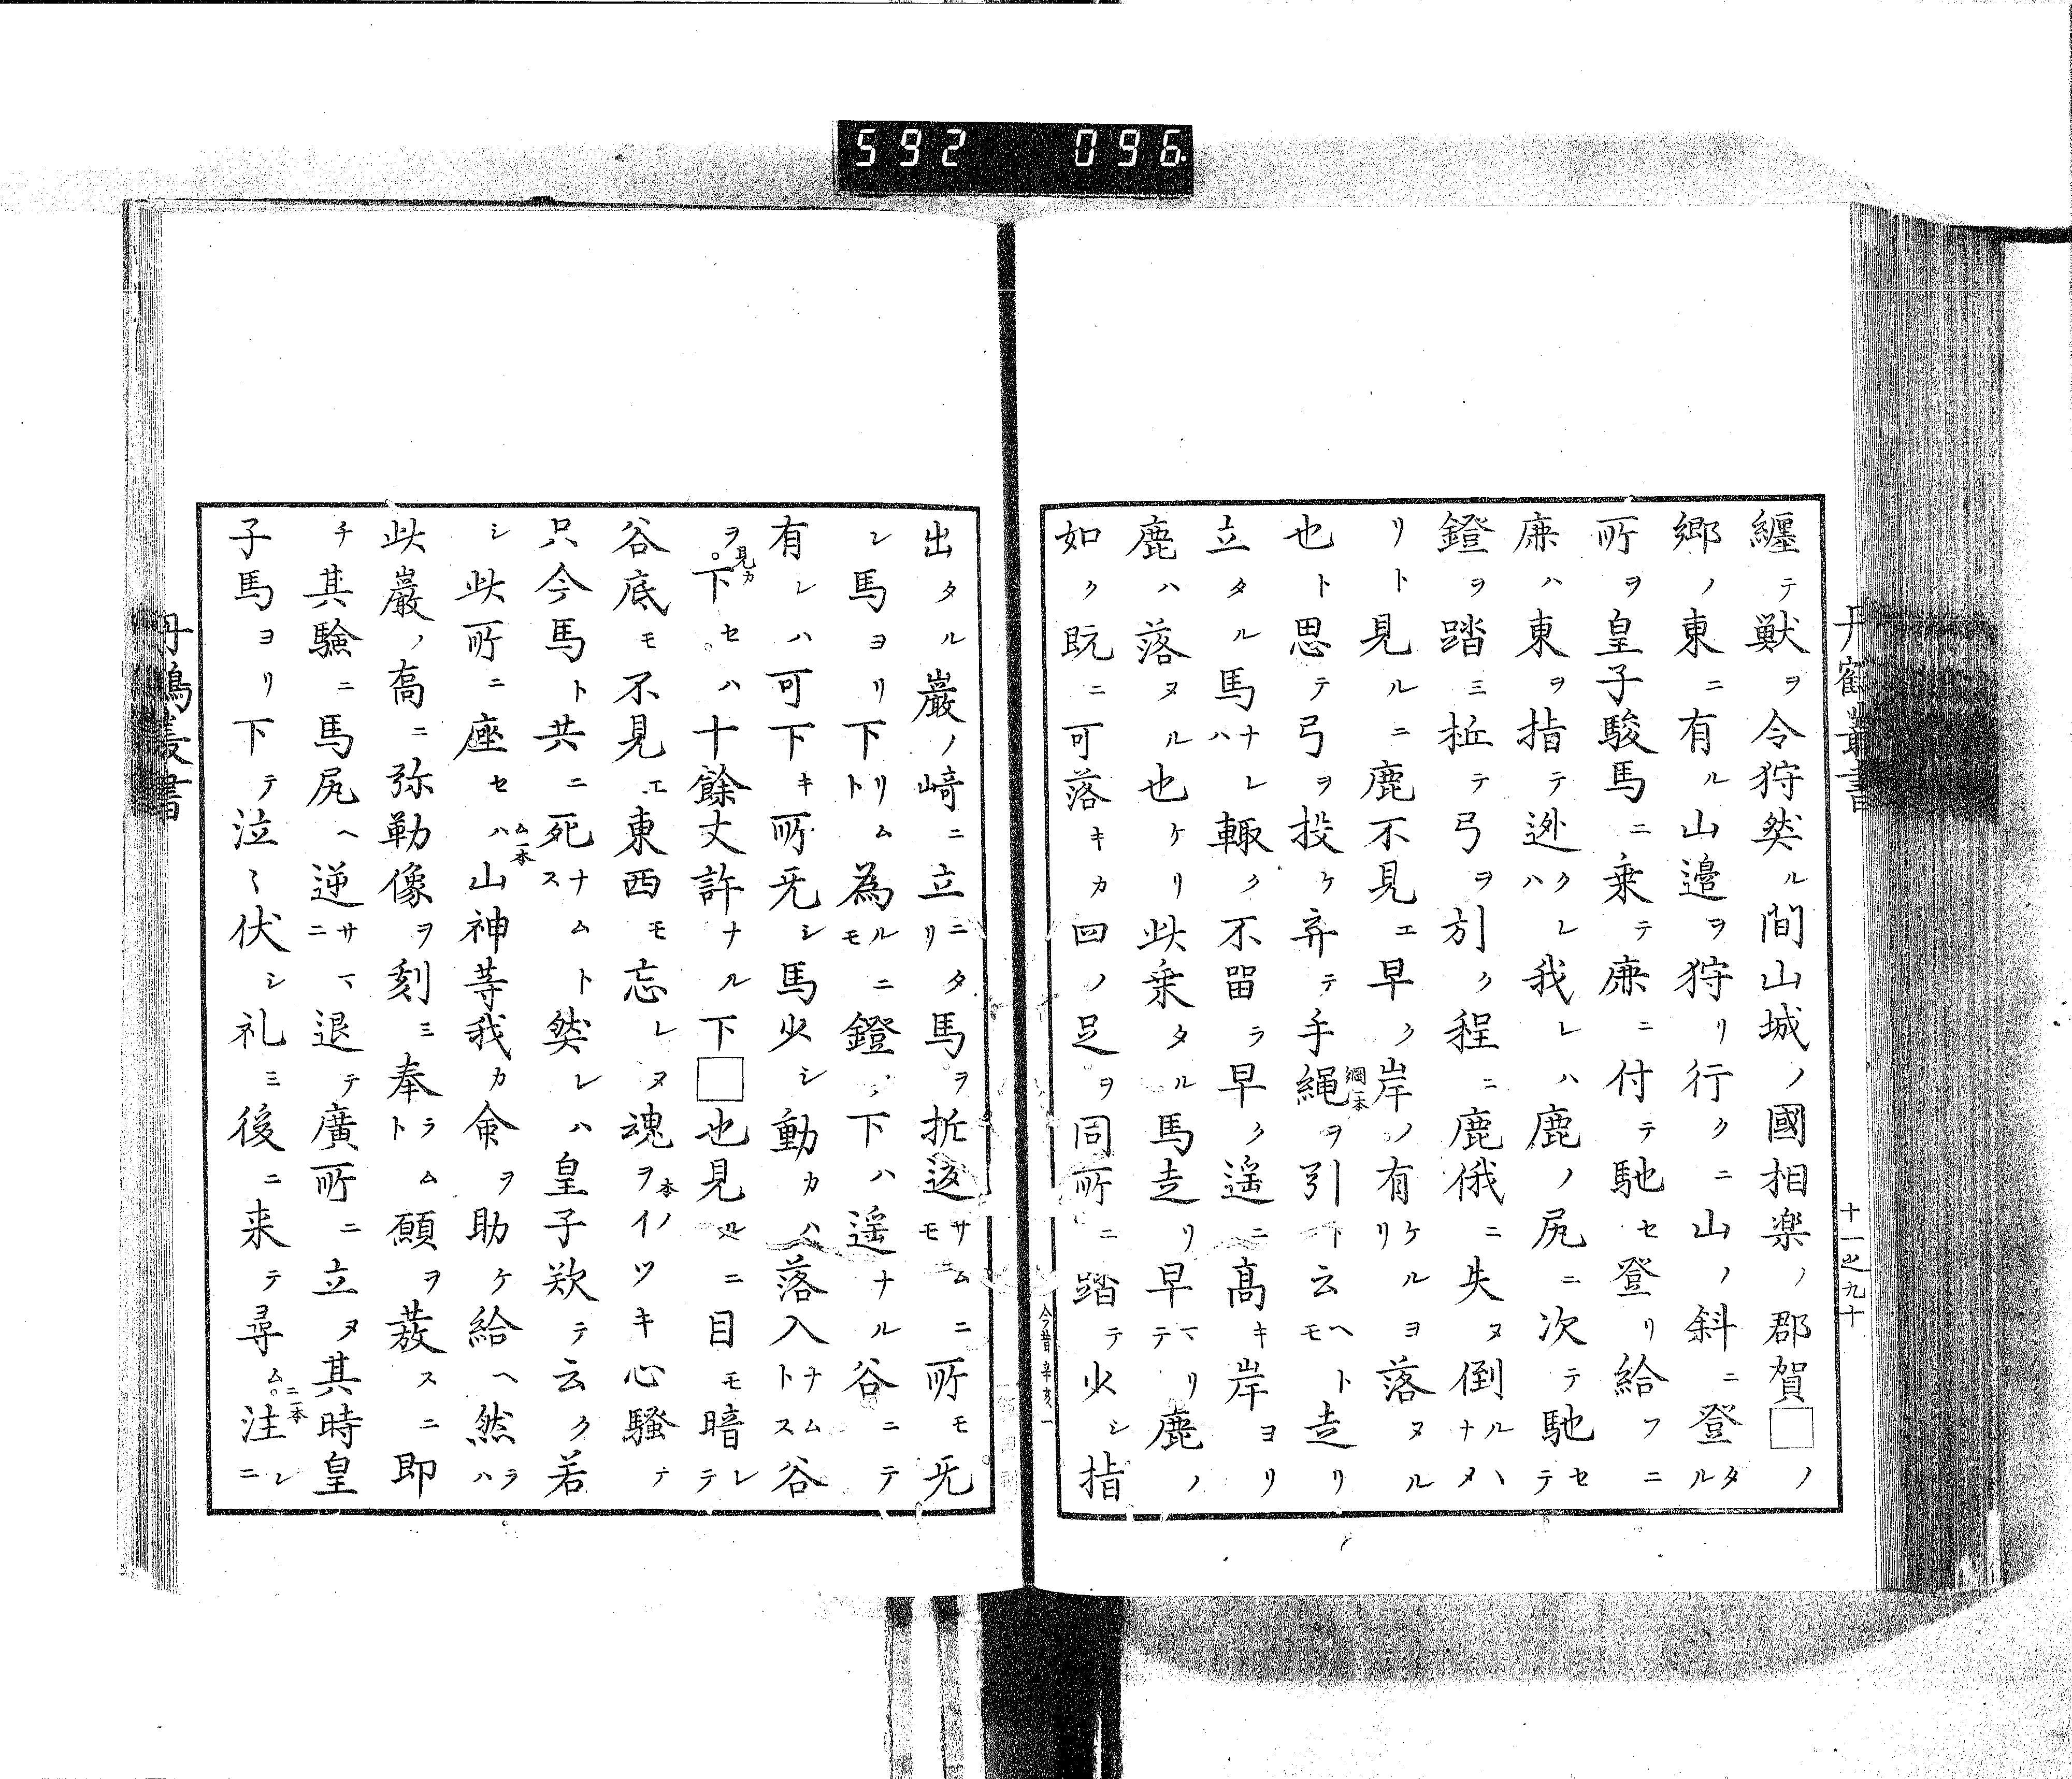 592 096
丹鶴叢書
十一之九十
纒テ獸ヲ令狩然ル間山城ノ國相楽ノ郡賀□ノ
郷ノ東ニ有ル山邉ヲ狩リ行クニ山ノ斜ニ登タル
所ヲ皇子駿馬ニ乗テ廉ニ付テ馳セ登リ給フニ
廉ハ東ヲ指テ逃クレハ我レハ鹿ノ尻ニ次テ馳セテ
鐙ヲ踏ミ拡テ弓ヲ引ク程ニ鹿俄ニ失ヌ倒ルヽナメ
リト見ルニ鹿不見エ早ク岸ノ有ケルヨリ落ヌル
也ト思テ弓ヲ投ケ弃テ手縄ヲ引トモ云ヘトモ走リ
綱一本
立タル馬ナレハ輙ク不留ラ早ク遥ニ髙キ岸ヨリ
鹿ハ落ヌル也ケリ此乗タル馬走リ早マリテ鹿ノ
如ク既ニ可落キカ四ノ足ヲ同所ニ踏テ少シ指
今昔 辛亥 一
出タル巖ノ﨑ニ立ニタリ馬ヲ折返サムニモ所モ无
シ馬ヨリ下リムト為ルニモ鐙ノ下ハ遥ナル谷ニテ
有レハ可下キ所无シ馬少シ動カハ落入ナムトス谷
ヲ下セハ十餘丈許ナル下□也見ルニ目モ暗レテ
見カ
谷底モ不見エ東西モ忘レヌ魂ヲイノツキ心騒テ
本
只今馬ト共ニ死ナムトス然レハ皇子歎テ云ク若
シ此所ニ座セハ山神等我カ命ヲ助ケ給ヘ然ラハ
ム一本
此巖ノ髙ニ弥勒像ヲ刻ミ奉ラムト願ヲ發スニ即
チ其驗ニ馬尻ヘ逆サマニ退テ廣所ニ立ヌ其時皇
子馬ヨリ下テ泣〻伏シ礼ミ後ニ来テ尋ム注シニ
ニ一本
丹鶴叢書